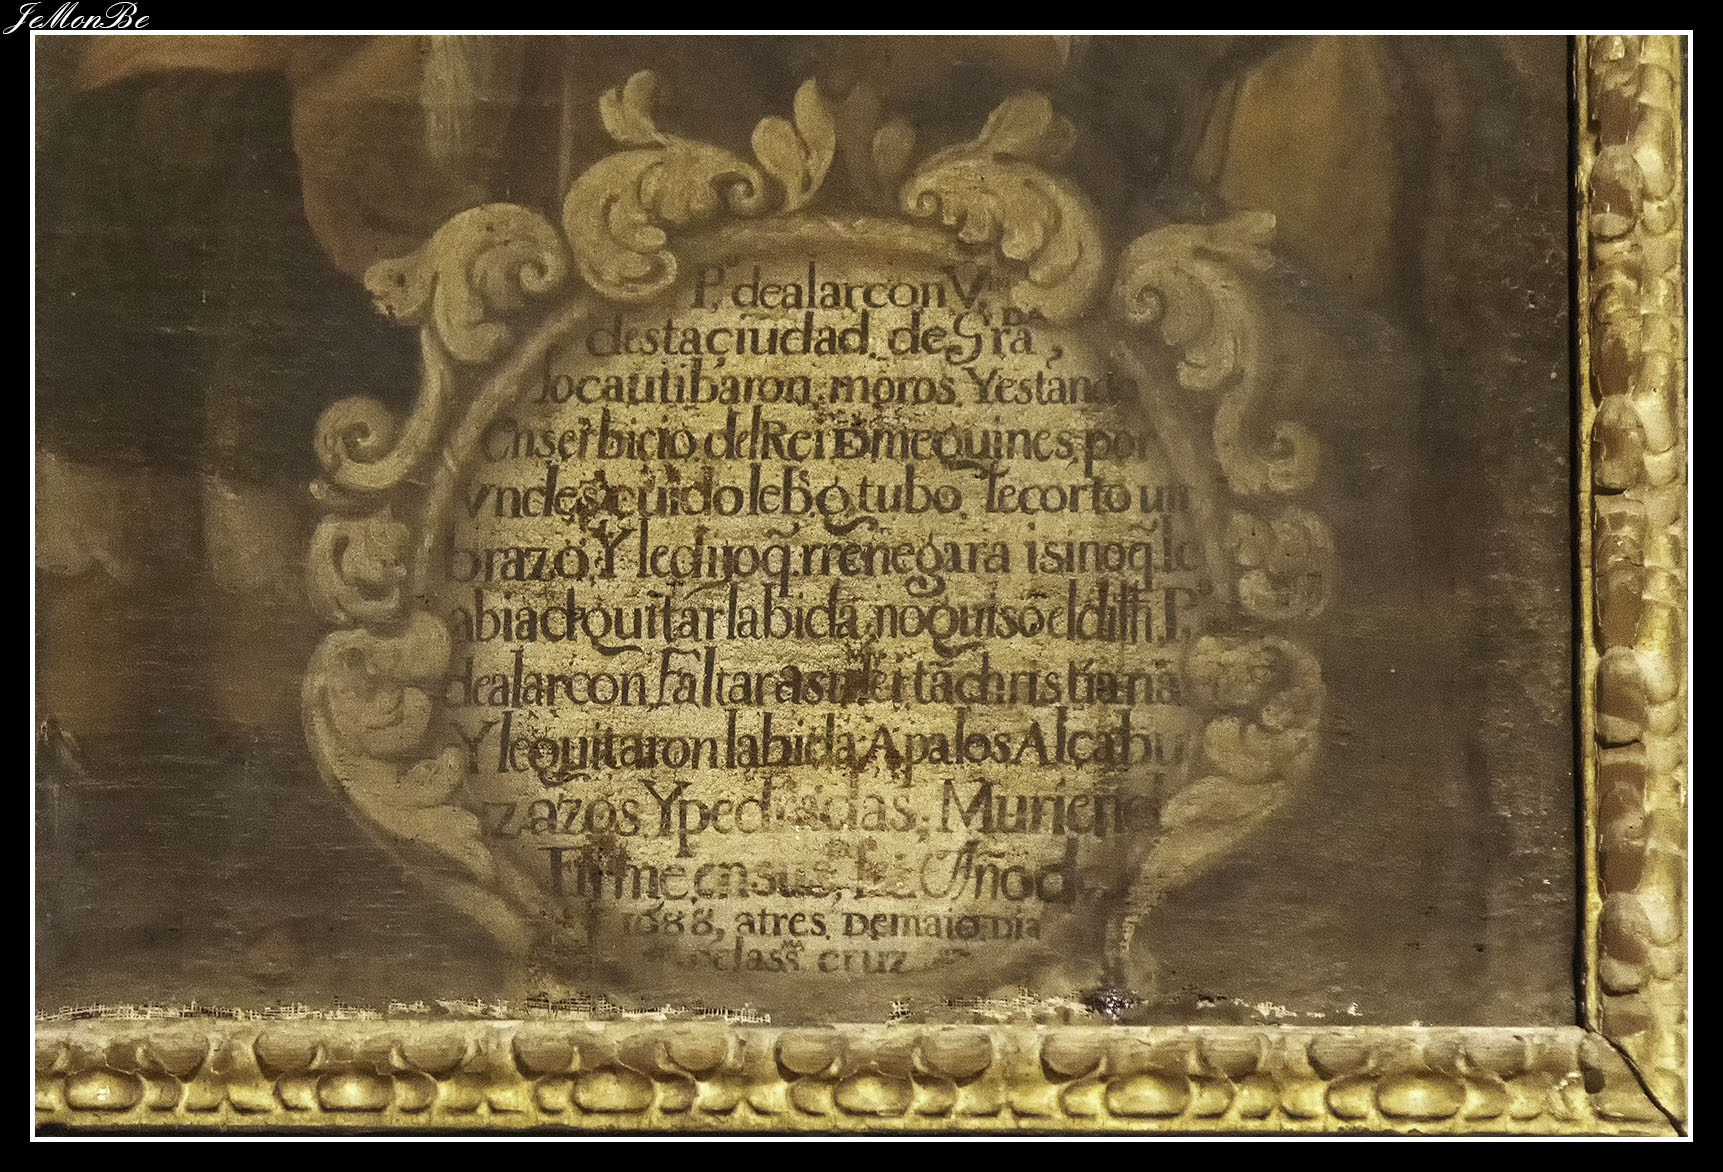 JeMonBe
P.º dealarcon V.no
desta çiudad de Gra.DA,
locautibaron moros Yestando
Enserbicio del Rei D mequines por
vn descuido leb.q tubo lecorto un
brazo Y ledijo q̃ rrenegara isino q̃ le
abia d quitar labida, no quiso el difũ. P.º
dealarcon faltar a su lei tã christiana
Y lequitaron labida Apalos Alcabu
zazos Y pedradas, Muriendo
firme en su lei Año d
1688, atres Demaio Dia
de la ss.MA cruz